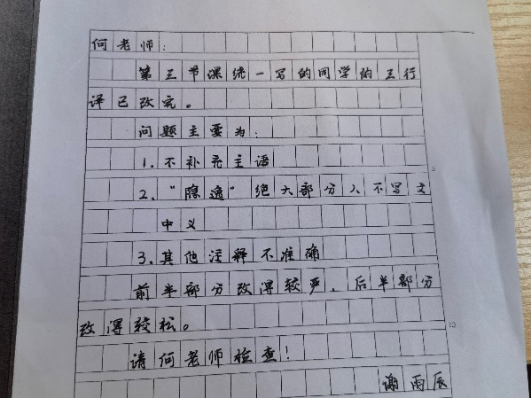 何老师：
第三节课统一写的同学的互行
译已改完。
问题主要为：
1.不补充主语
2.“隐逸”绝大部分人不写文
中义
3.其他注释不准确
前半部分改得较严，后半部分
改得较松。
请何老师检查！
谢雨辰